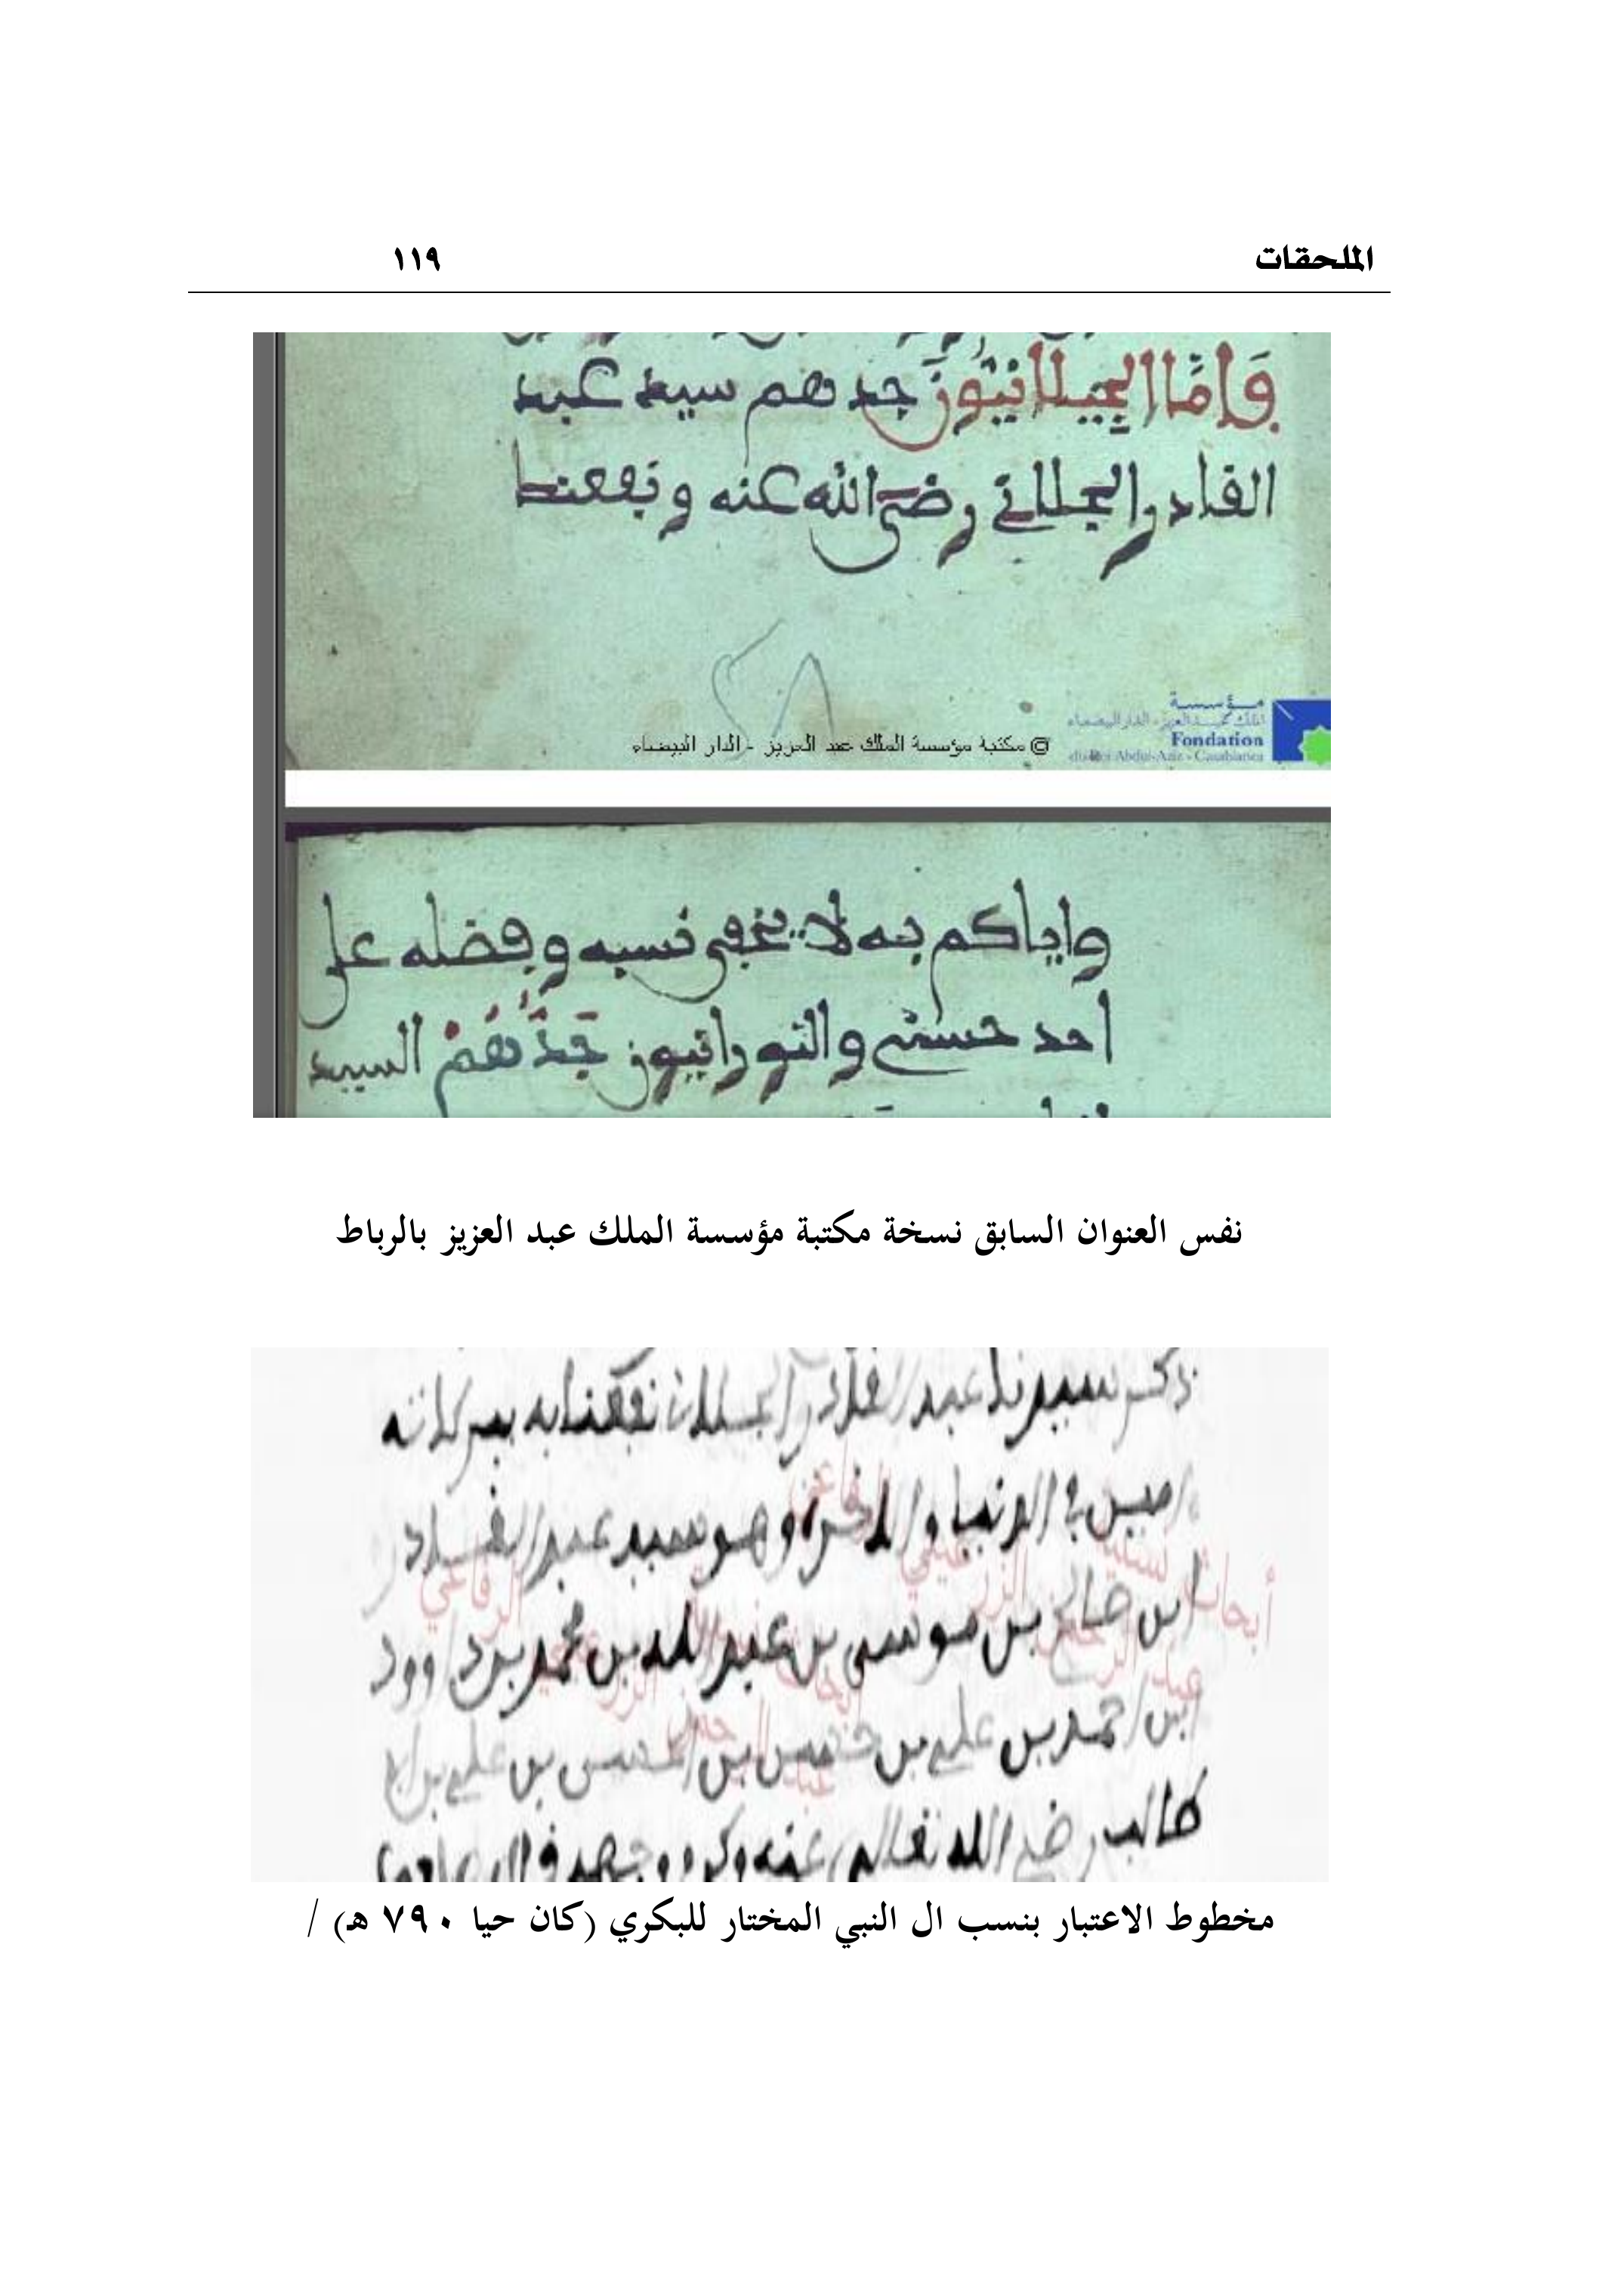 الملحقات ١١٩
وَامَّا الجيلانيُّون جدهم سيد عبد
القادر الجيلاني رضي الله عنه ونفعنا
٢٨
@ مكتبة مؤسسة الملك عبد العزيز - الدار البيضاء
مؤسسة
الملك عبد العزيز - الدار البيضاء
Fondation
du Roi Abdul-Aziz - Casablanca
واياكم به لا يخفى نسبه وفضله على
احد حسني والنورانيون جدُّهُمْ السيد
نفس العنوان السابق نسخة مكتبة مؤسسة الملك عبد العزيز بالرباط
ذكر سيدنا عبد القادر الجيلاني نفعنا به ببركاته
امين في الدنيا والاخرة وهو سيد عبد القادر
ابن صالح بن موسى بن عبد الله بن محمد بن داوود
ابن احمد بن علي بن حسن بن الحسن بن علي بن ابي
طالب رضي الله تعالى عنه وكرم وجهه
مخطوط الاعتبار بنسب ال النبي المختار للبكري (كان حيا ٧٩٠ هـ) /